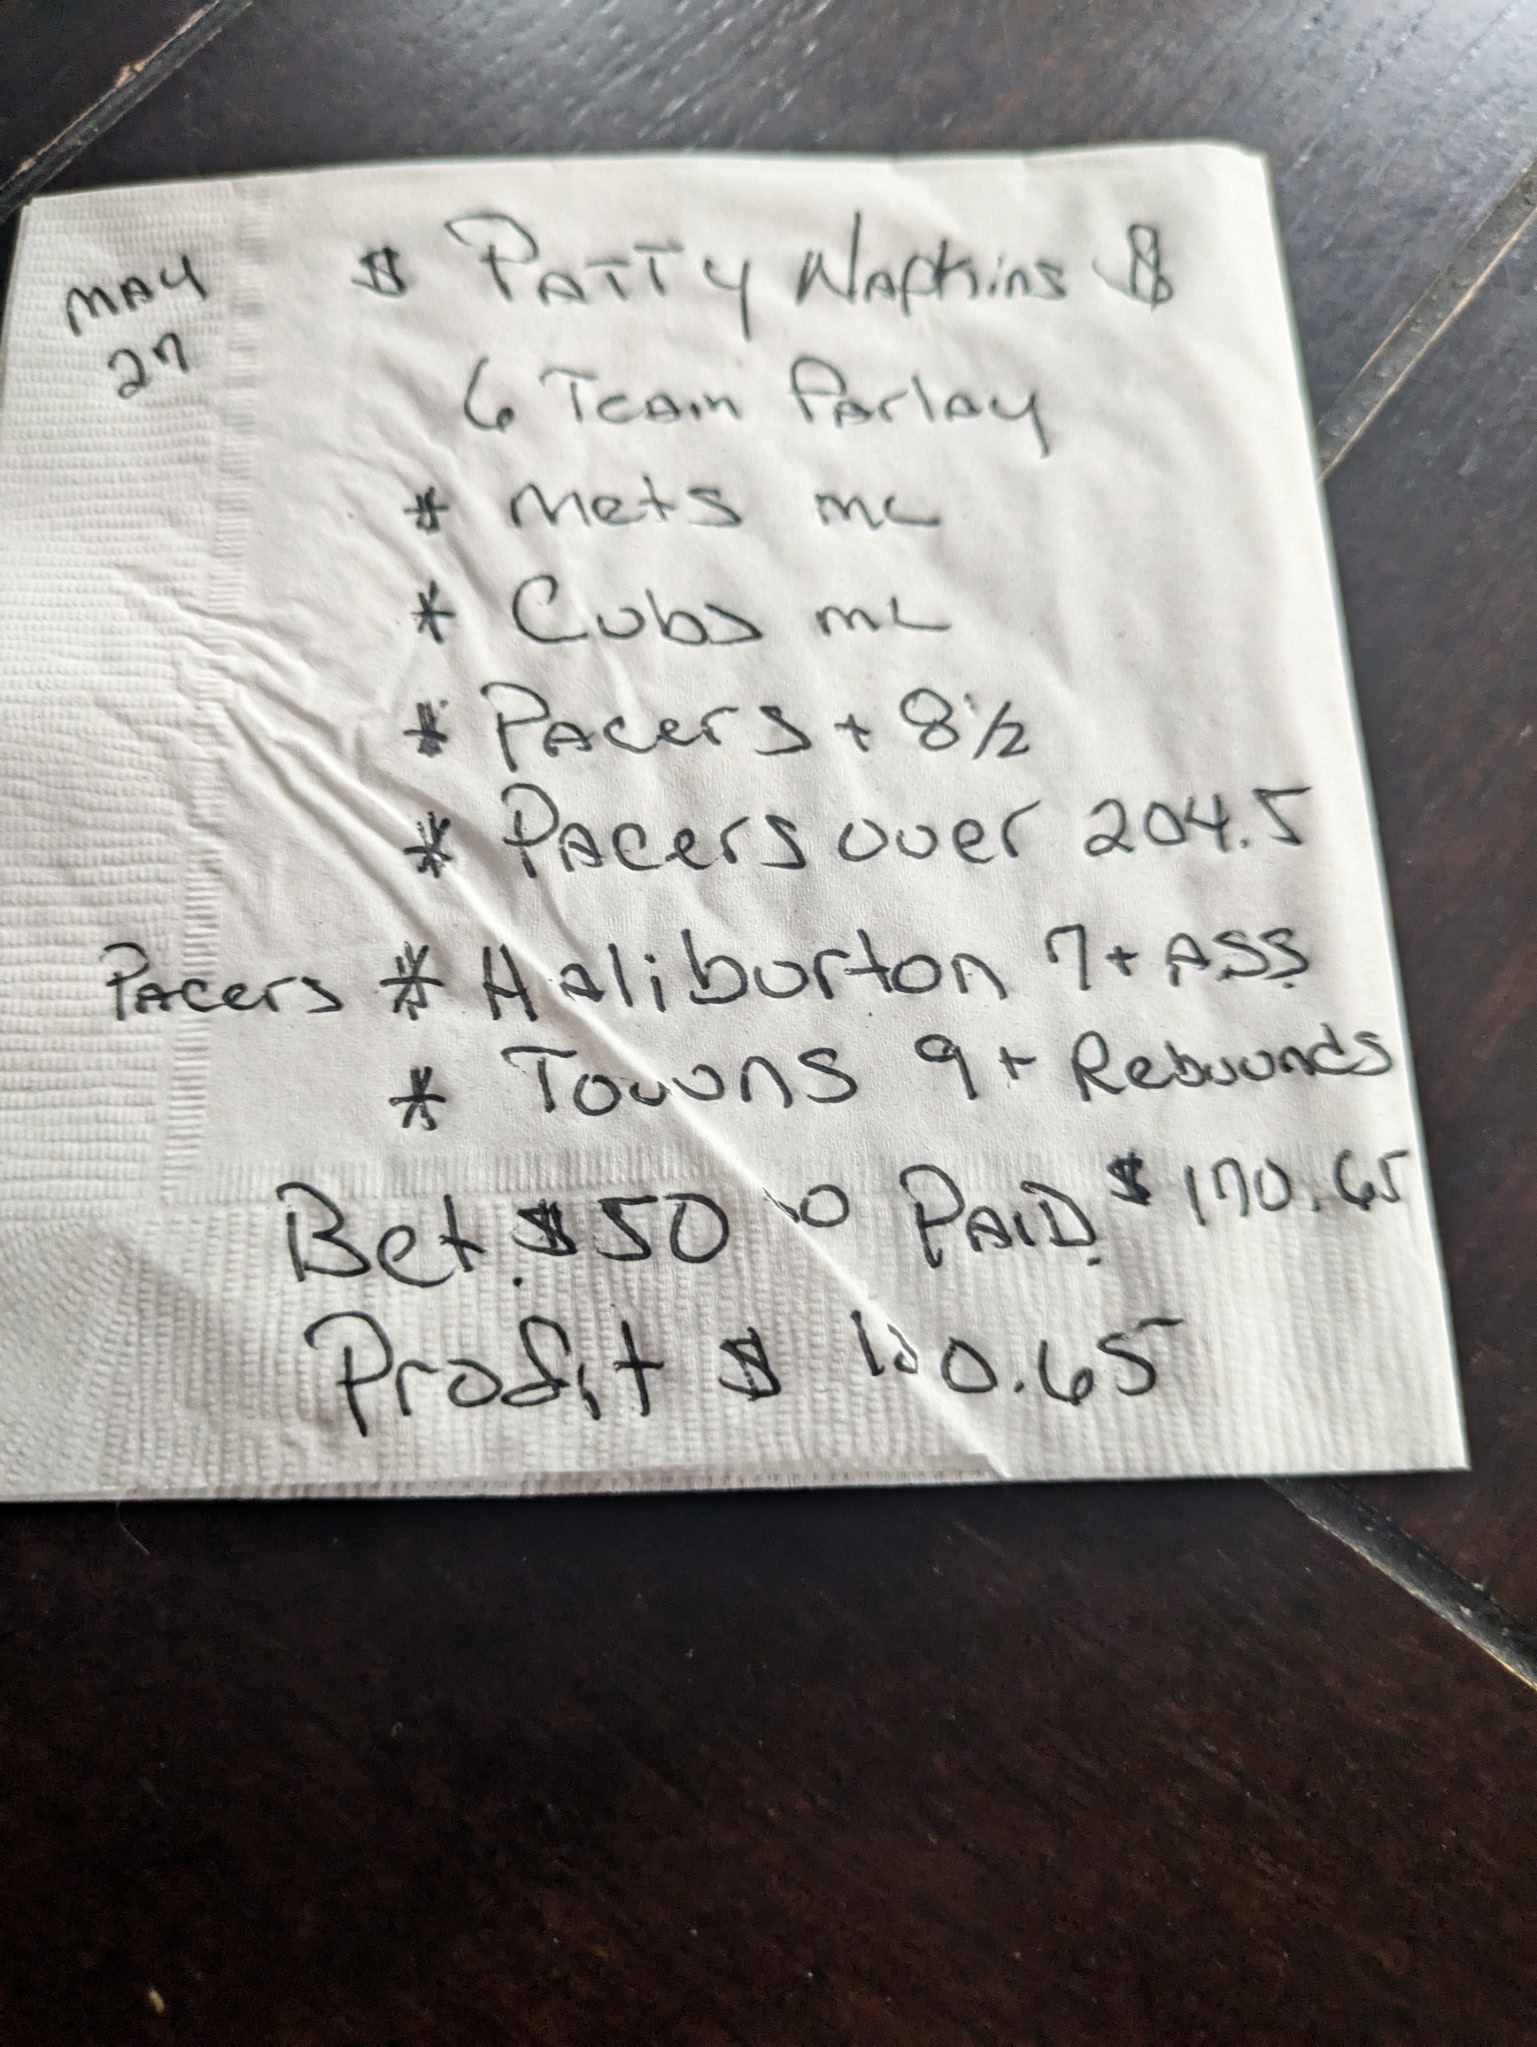 MAY
27
$ PATTY NAPkins $
6 Team Parlay
* Mets ML
* Cubs ML
* PACErS + 8 1/2
* PACErS over 204.5
PAcers * HAliburton 7+ ASS
* Towns 9+ Rebounds
Bet $50 00 PAID $170.65
Profit $ 120.65